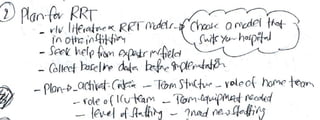 ② Plan for RRT
- r/v literature & RRT models
in other institution
Choose a model that
suits your hospital
- Seek help from experts in field
- Collect baseline data before implementation
- Plan → activat Criteria - Team Structure - role of home team
- role of ICU team - Team equipment needed
- level of staffing - ?need new staffing